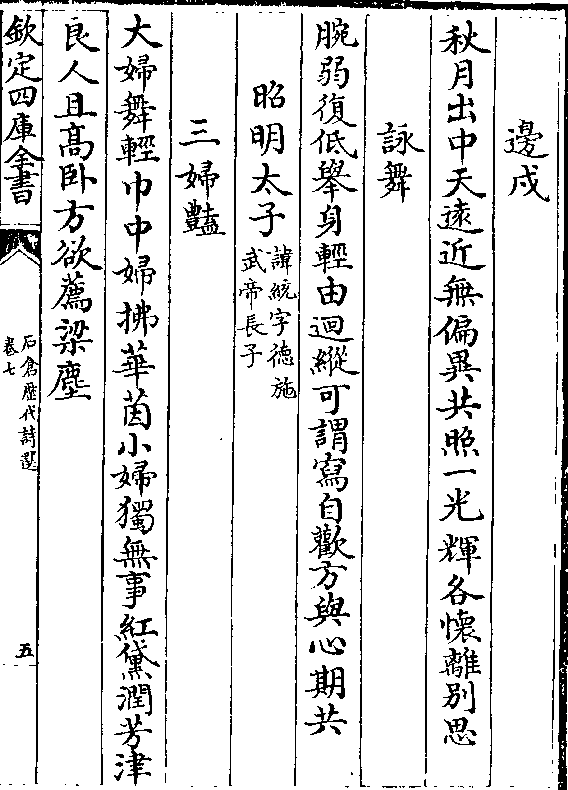 邊戍
秋月出中天遠近無偏異共照一光輝各懷離別思
詠舞
腕弱復低舉身輕由迴縱可謂寫自歡方與心期共
昭明太子諱統字德施
武帝長子
三婦豔
大婦舞輕巾中婦拂華茵小婦獨無事紅黛潤芳津
良人且髙卧方欲薦梁塵
欽定四庫全書
石倉歴代詩選
卷七
五